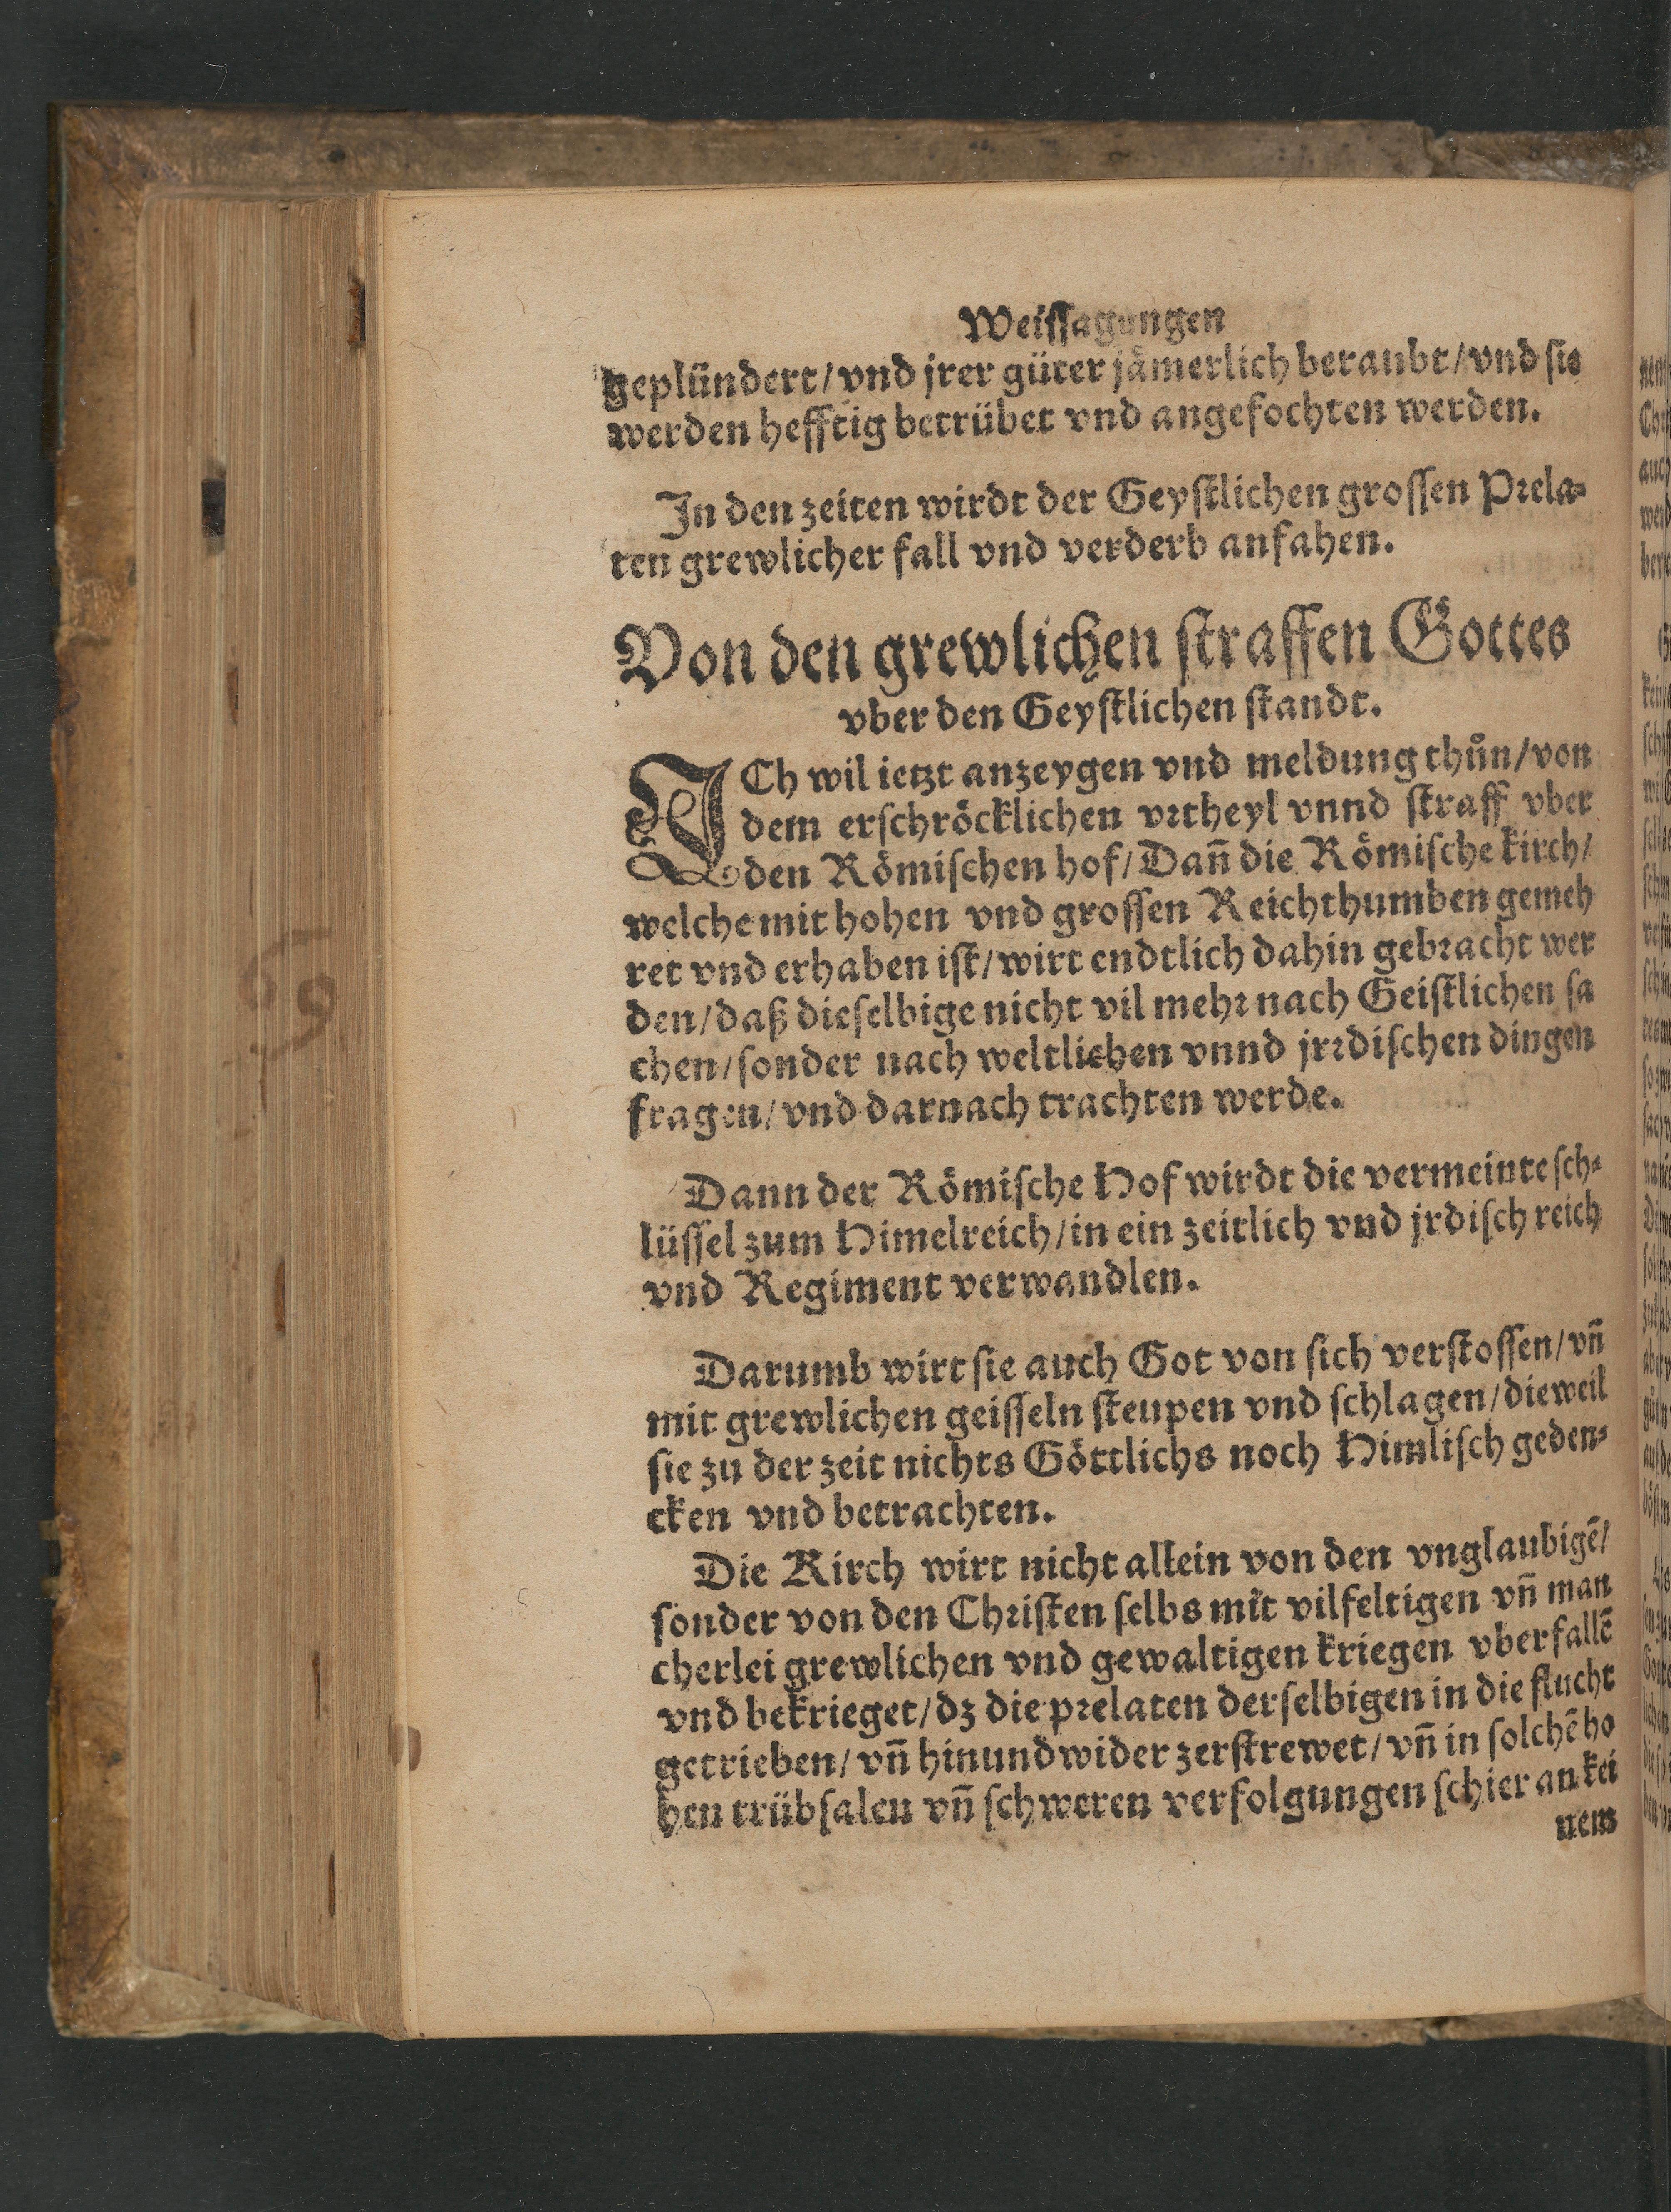 Weissagungen
geplündert/ vnd jrer güter jämerlich beraubt/ vnd sie
werden hefftig betrübet vnd angefochten werden.
In den zeiten wirdt der Geystlichen grossen Prela⸗
ten grewlicher fall vnd verderb anfahen.
Von den grewlichen straffen Gottes
vber den Geystlichen standt.
ICh wil ietzt anzeygen vnd meldung thůn/ von
dem erschröcklichen vrtheyl vnnd straff vber
den Römischen hof/ Dañ die Römische kirch/
welche mit hohen vnd grossen Reichthumben gemeh
ret vnd erhaben ist/ wirt endtlich dahin gebracht wer
den/ daß dieselbige nicht vil mehr nach Geistlichen sa
chen/ sonder nach weltlichen vnnd jrrdischen dingen
fragen/ vnd darnach trachten werde.
Dann der Römische Hof wirdt die vermeinte sch⸗
lüssel zum Himelreich/ in ein zeitlich vnd jrdisch reich
vnd Regiment verwandlen.
Darumb wirt sie auch Got von sich verstossen/ vñ
mit grewlichen geisseln steupen vnd schlagen/ dieweil
sie zu der zeit nichts Göttlichs noch Himlisch geden⸗
cken vnd betrachten.
Die Kirch wirt nicht allein von den vnglaubigẽ/
sonder von den Christen selbs mit vilfeltigen vñ man
cherlei grewlichen vnd gewaltigen kriegen vberfallẽ
vnd bekrieget/ dz die prelaten derselbigen in die flucht
getrieben/ vñ hinundwider zerstrewet/ vñ in solchẽ ho
hen trübsalen vñ schweren verfolgungen schier an kei
nem
69